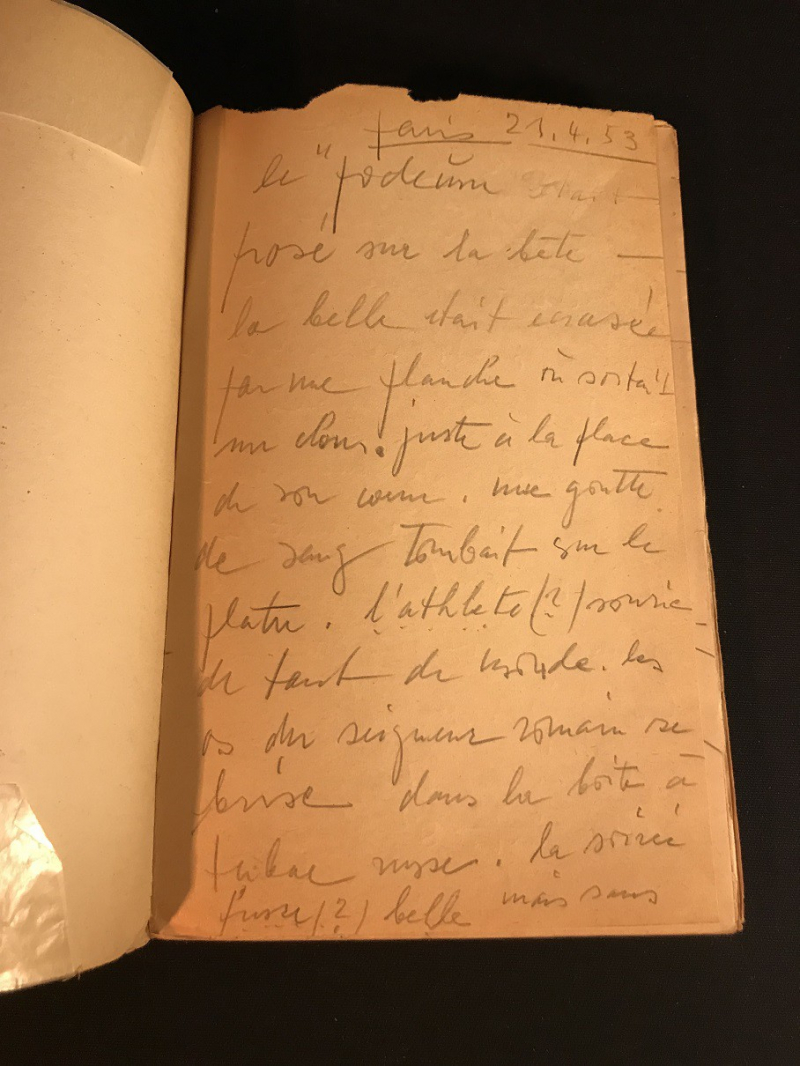 Paris 21.4.53
le "podeum était —
posé sur la bete —
la belle était ecrasée
par une planche où sortait
un clou. juste à la place
de son cœur. une goutte
de sang tombait sur le
platre. l'athlete (?) sourie
de tant de monde. les
os du seigneur romain se
brise dans la boite à
tabac russe. la soirée
fusse (?) belle mais sans